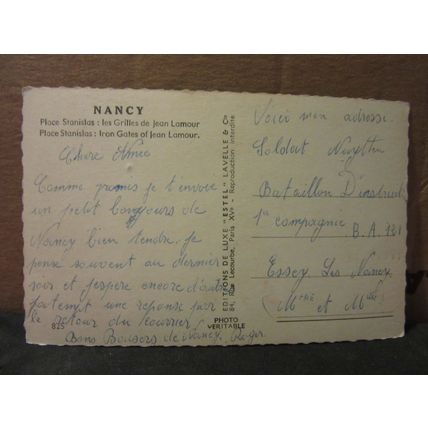 NANCY
Place Stanislas : les Grilles de Jean Lamour
Place Stanislas : Iron Gates of Jean Lamour.
Chère
Comme promis je t'envoie
un petit bonjours de
Nancy bien tendre. je
pense souvent au dernier
soir et j'espère encore
une reponse par
le retour du courrier
Bons Baisers de Nancy. Roger.
825
PHOTO
VERITABLE
EDITIONS DE LUXE "ESTEL" LAVELLE & Cie
84, Rue Lecourbe, Paris XVe - Reproduction interdite
Voici mon adresse.
Soldat
Bataillon D'instruct
1re compagnie B.A. 121
Essey Les Nancy
M et M